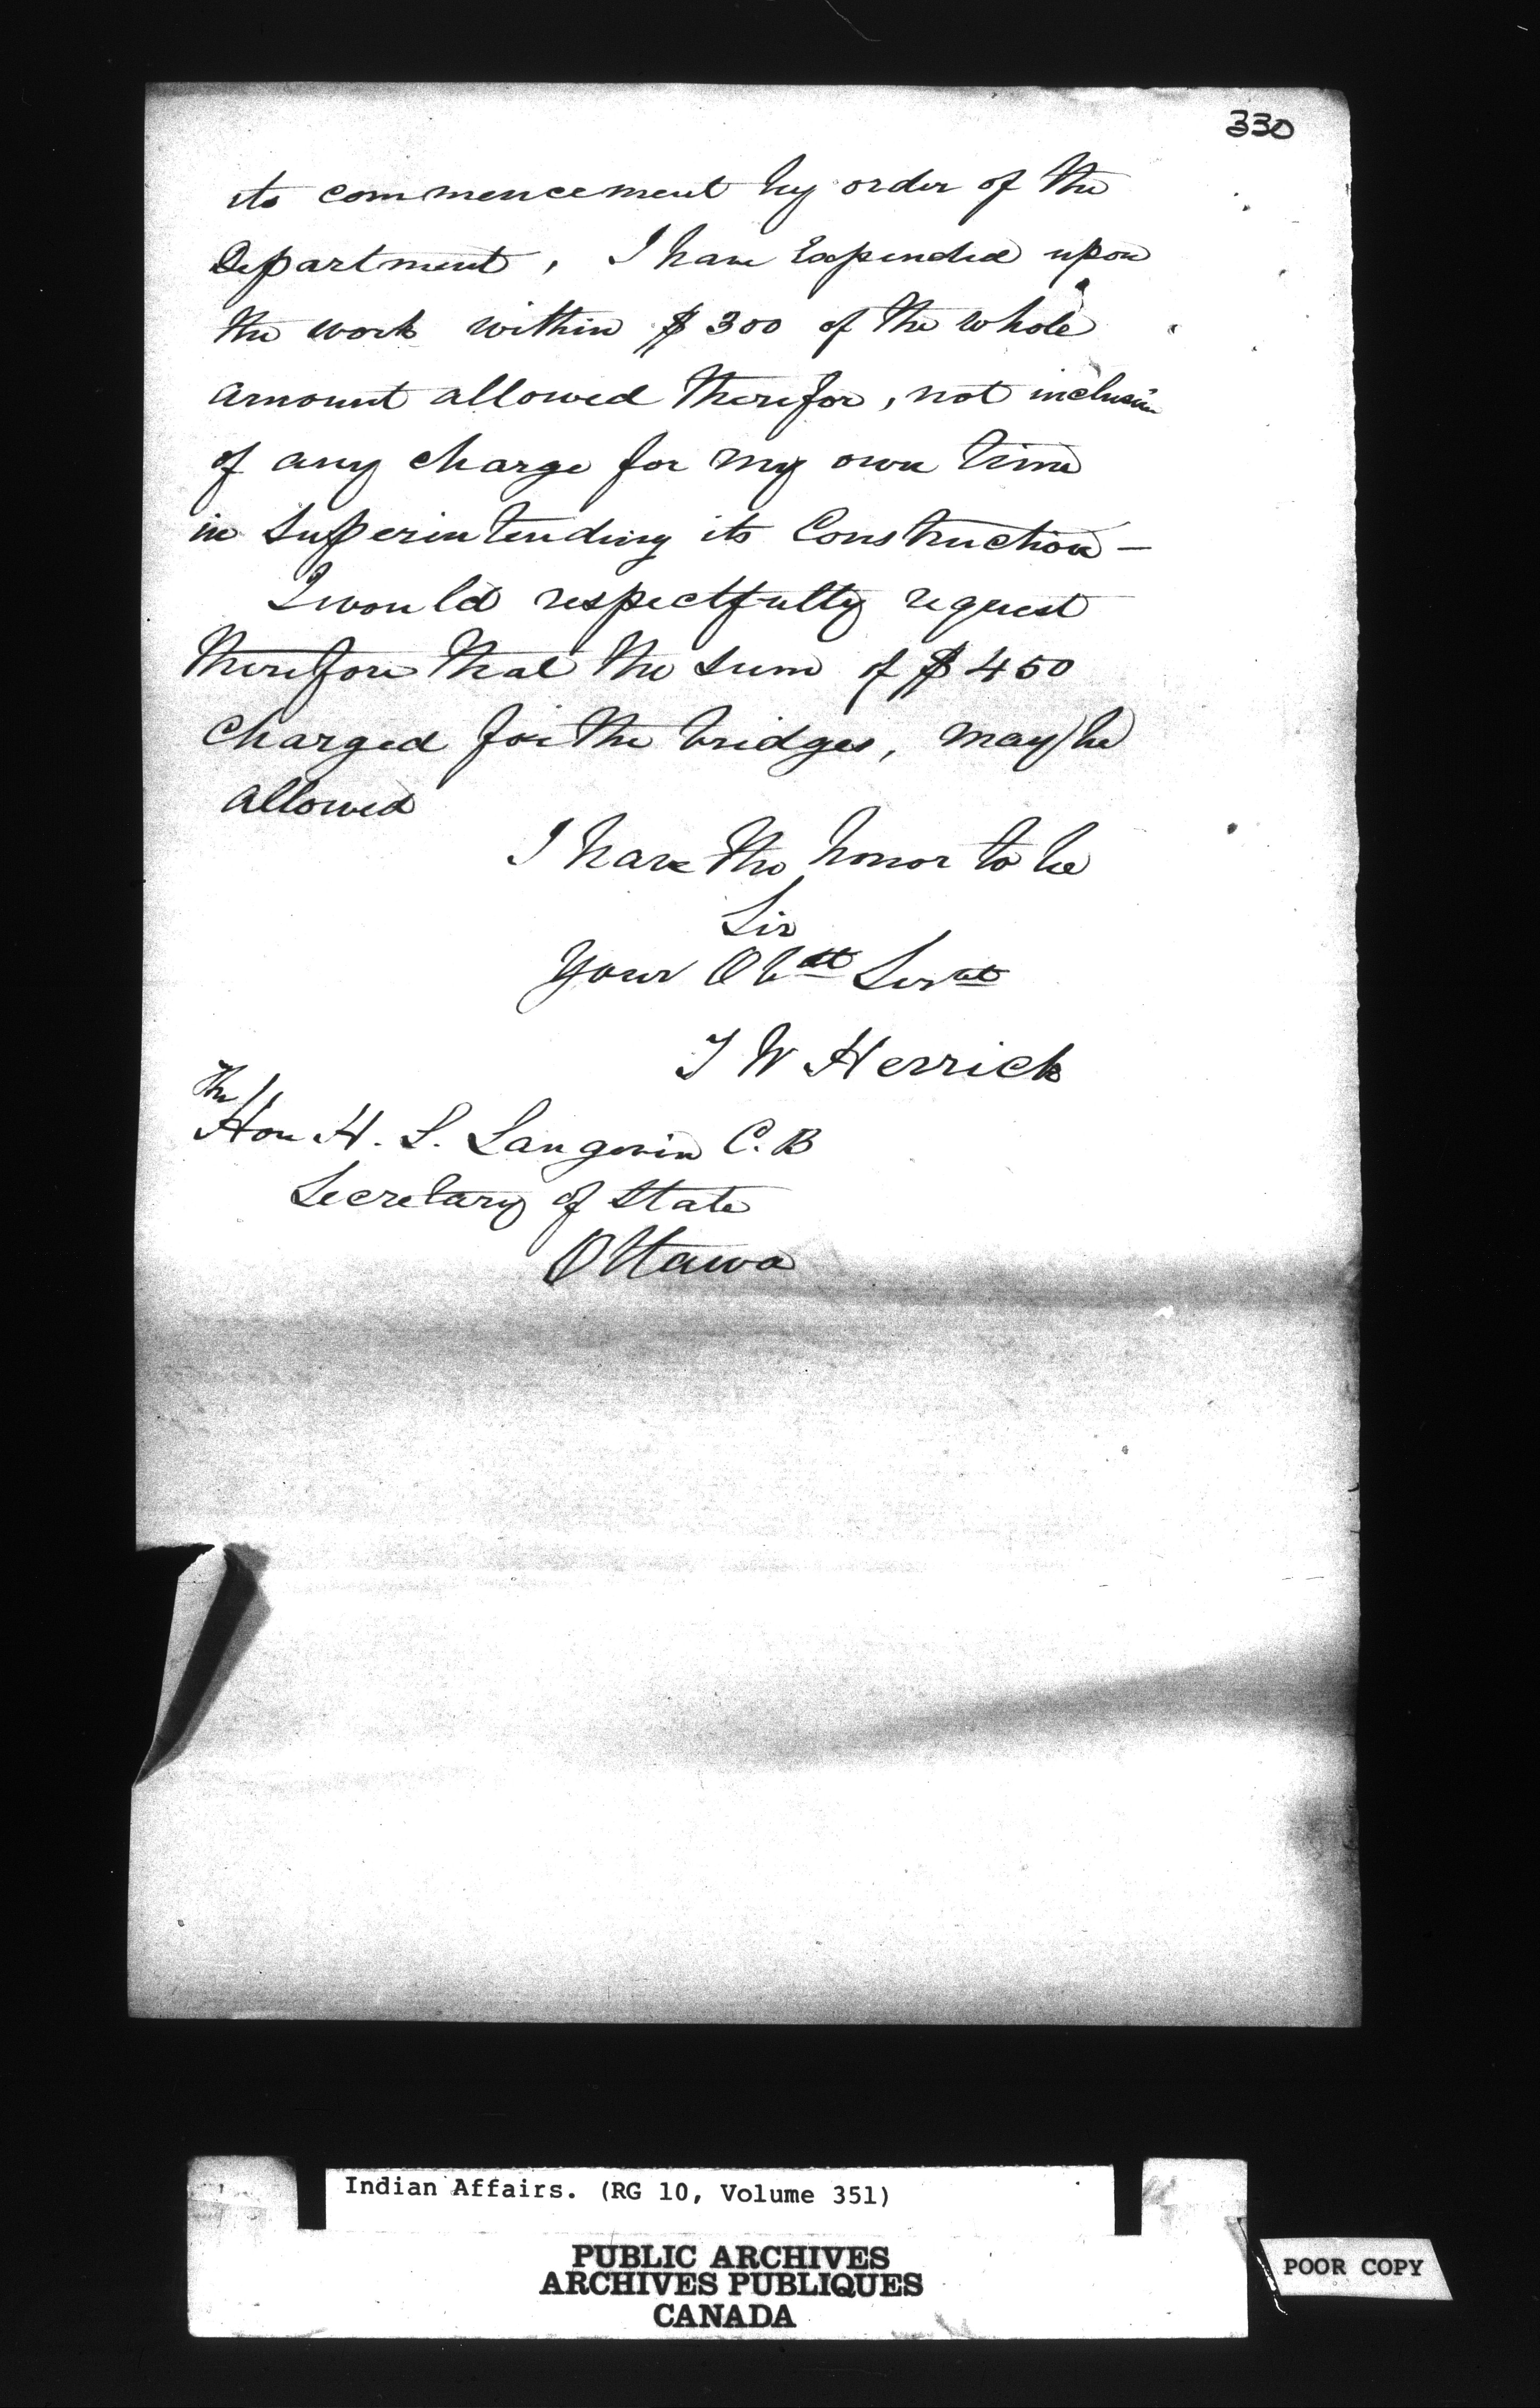 330
its commencement by order of the
Department, I have Expended upon
the work within $300 of the whole
amount allowed therefor, not inclusive
of any charge for my own time
in Superintending its Construction —
I would respectfully request
therefore that the sum of $450
Charged for the bridges, may be
allowed
I have the honor to be
Sir
Your Obdt Servt
T W Herrick
The
Hon H. L. Langevin C. B
Secretary of State
Ottawa
Indian Affairs. (RG 10, Volume 351)
PUBLIC ARCHIVES
ARCHIVES PUBLIQUES
CANADA
POOR COPY